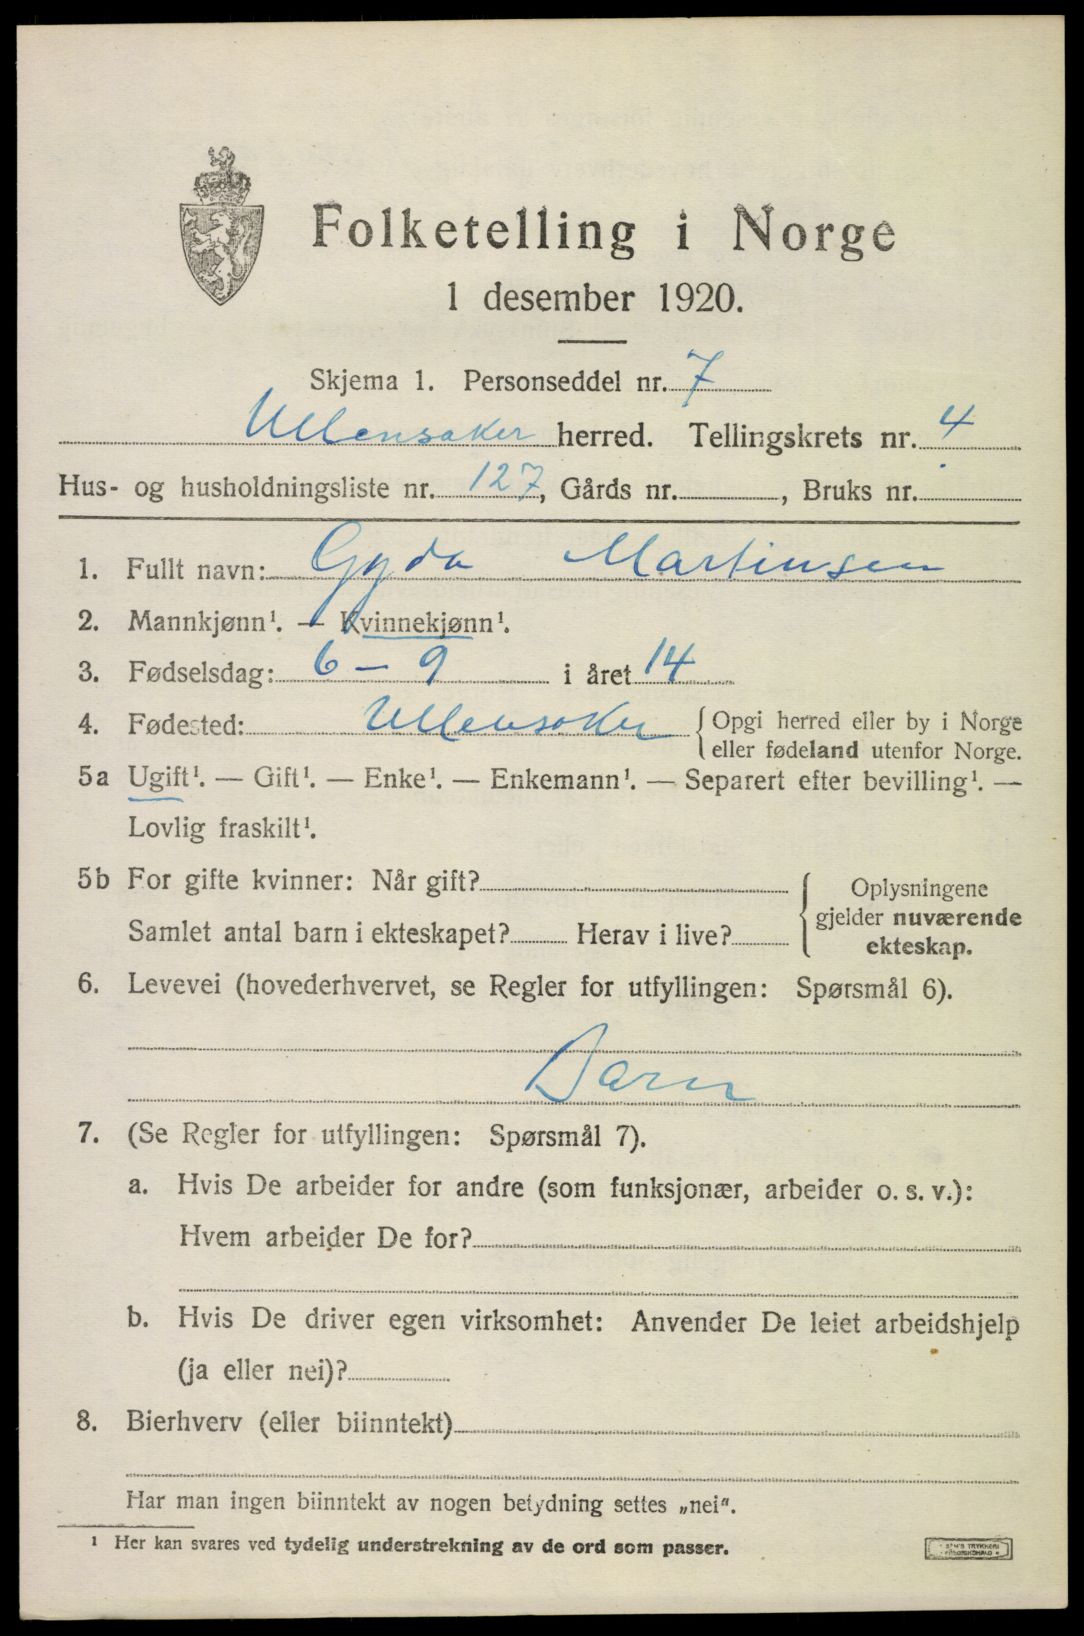 Folketelling i Norge
1 desember 1920.
Skjema 1. Personseddel nr. 7
Ullensaker herred. Tellingskrets nr. 4
Hus- og husholdningsliste nr. 127, Gårds nr. , Bruks nr.
1. Fullt navn: Gyda Martinsen
2. Mannkjønn¹. — Kvinnekjønn¹.
3. Fødselsdag: 6 – 9 i året 14
4. Fødested: Ullensaker {Opgi herred eller by i Norge
eller fødeland utenfor Norge.
5a Ugift¹. — Gift¹. — Enke¹. — Enkemann¹. — Separert efter bevilling¹. —
Lovlig fraskilt¹.
5b For gifte kvinner: Når gift? { Oplysningene
gjelder nuværende
Samlet antal barn i ekteskapet? Herav i live?
ekteskap.
6. Levevei (hovederhvervet, se Regler for utfyllingen: Spørsmål 6).
Barn
7. (Se Regler for utfyllingen: Spørsmål 7).
a. Hvis De arbeider for andre (som funksjonær, arbeider o. s. v.):
Hvem arbeider De for?
b. Hvis De driver egen virksomhet: Anvender De leiet arbeidshjelp
(ja eller nei)?
8. Bierhverv (eller biinntekt)
Har man ingen biinntekt av nogen betydning settes „nei“.
¹ Her kan svares ved tydelig understrekning av de ord som passer.